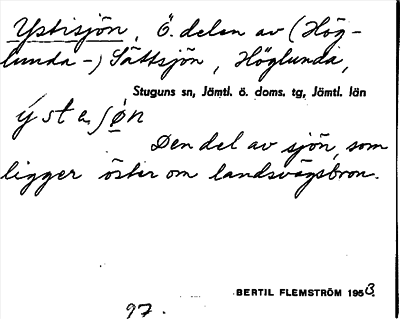 Ystisjön, Ö. delen av (Hög-
lunda-) Sättsjön, Höglunda,
Stuguns sn, Jämtl. ö. doms. tg, Jämtl. län
Den del av sjön, som
ligger öster om landsvägsbron.
BERTIL FLEMSTRÖM 1953.
97.